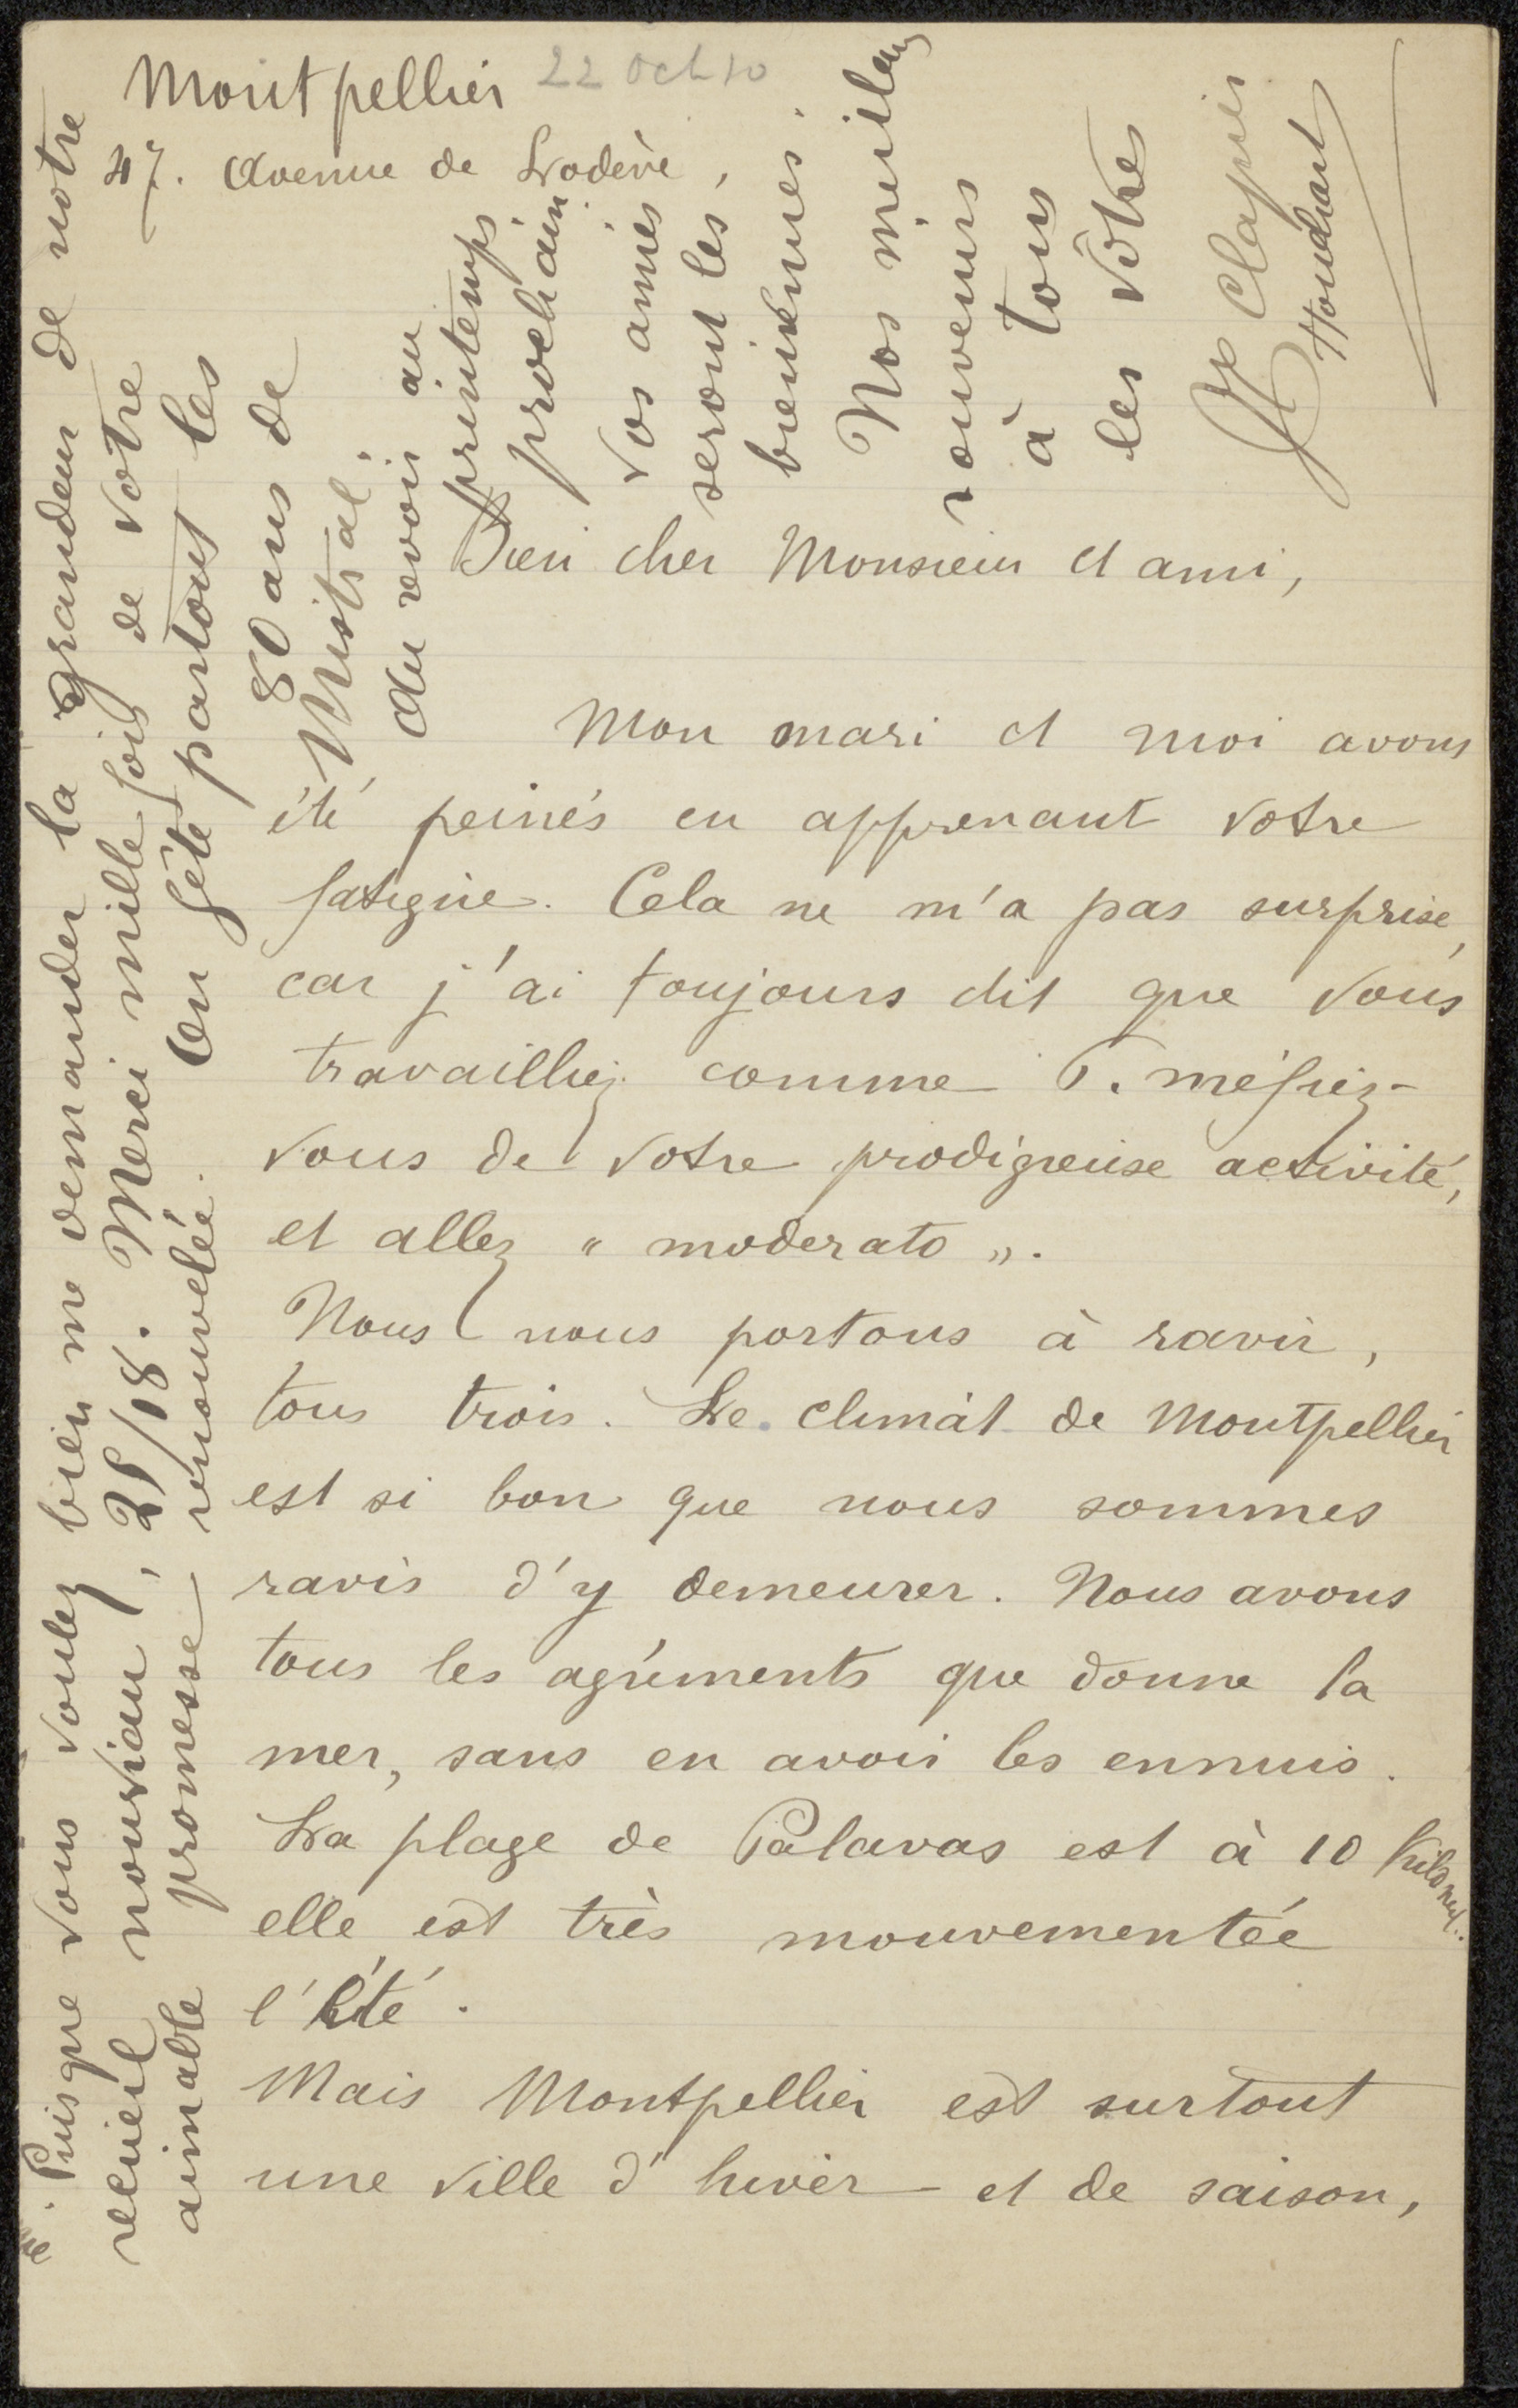 Montpellier 22 Oct 10
47. Avenue de Lodève,
Bien cher Monsieur et ami,
Mon mari et moi avons
été peinés en apprenant votre
fatigue. Cela ne m'a pas surprise,
car j'ai toujours dit que vous
travailliez comme 6. méfiez-
vous de votre prodigieuse activité,
et allez « moderato ».
Nous nous portons à ravir,
tous trois. Le climat de Montpellier
est si bon que nous sommes
ravis d'y demeurer. Nous avons
tous les agréments que donne la
mer, sans en avoir les ennuis.
La plage de Palavas est à 10 kilomet..
elle est très mouvementée
l'Eté.
Mais Montpellier est surtout
une ville d'hiver et de saison,
Puisque vous voulez bien me demander la grandeur de notre
recueil nouveau, 28/18. Merci mille fois de votre
aimable promesse renouvelée. On fête partout les
80 ans de
Mistral.
Au revoir au
printemps
prochain
Vos amies
seront les
bienvenues.
Nos meilleurs
souvenirs
à tous
les vôtres
Clapier
Houdiart